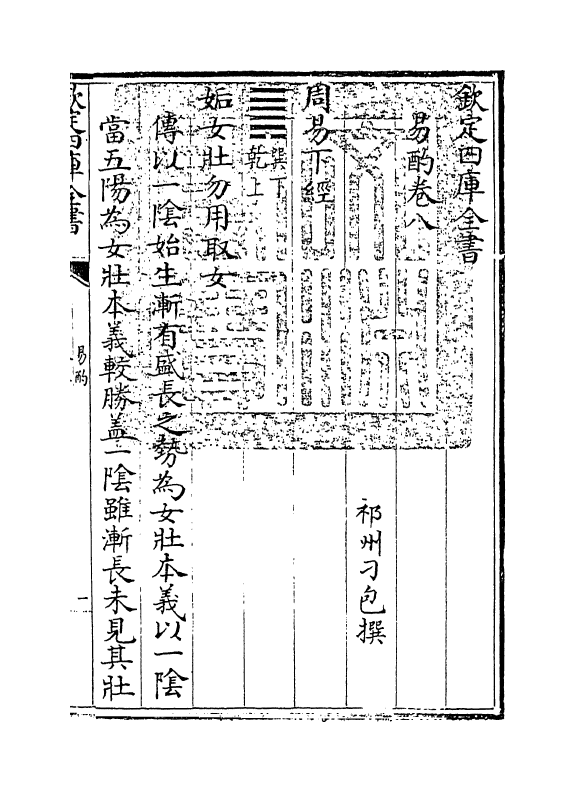 欽定四庫全書
易酌卷八
祁州刁包撰
周易下經
巽下
乾上
姤女壯勿用取女
傳以一陰始生漸有盛長之勢為女壯本義以一陰
當五陽為女壯本義較勝蓋一陰雖漸長未見其壯
欽定四庫全書
易酌
一